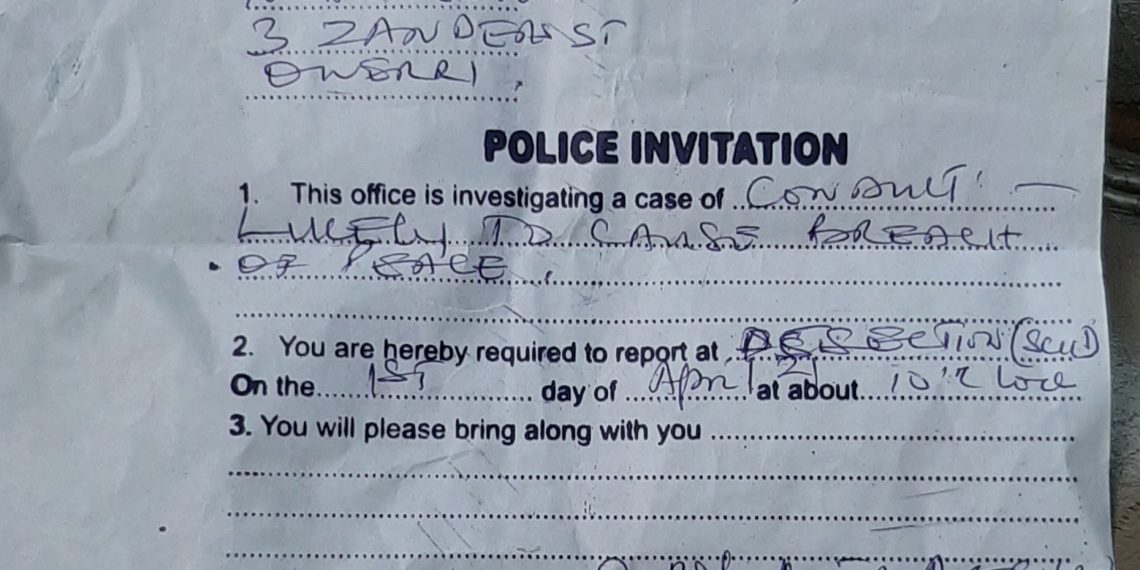 3 ZANDERS ST
OWERRI,
POLICE INVITATION
1. This office is investigating a case of CONDUCT
LIKELY TO CAUSE BREACH
OF PEACE.
2. You are hereby required to report at SECTION
On the 1ST day of April 21 at about 10'
3. You will please bring along with you